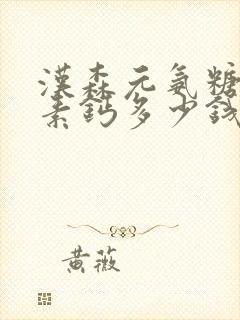 漢森元氣糖
素鈣多少錢
黃薇